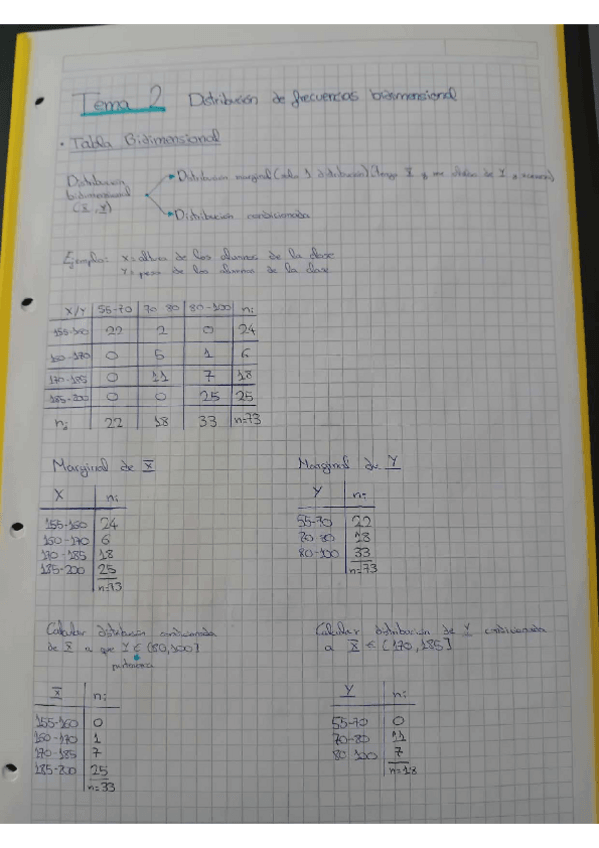 Tema 2 Distribución de frecuencias bidimensional
• Tabla Bidimensional
Distribución bidimensional (X, Y)
Distribución marginal (solo 1 distribución) (Tengo X y me olvido de Y
Distribución condicionada
Ejemplo: X= altura de los alumnos de la clase
Y= peso de los alumnos de la clase
X/Y 55-70 70-80 80-100 ni
155-160 22 2 0 24
160-170 0 5 1 6
170-185 0 11 7 18
185-200 0 0 25 25
nj 22 18 33 n=73
Marginal de X
X ni
155-160 24
160-170 6
170-185 18
185-200 25
n=73
Marginal de Y
Y ni
55-70 22
70-80 18
80-100 33
n=73
Calcular distribución condicionada
de X a que Y ∈ (80,100]
X ni
155-160 0
160-170 1
170-185 7
185-200 25
n=33
Calcular distribución de Y condicionada
a X ∈ (170,185]
Y ni
55-70 0
70-80 11
80-100 7
n=18